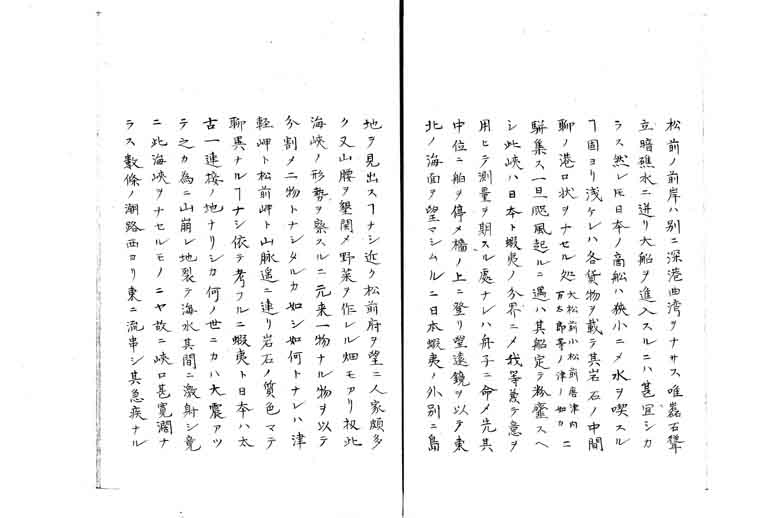 松前ノ前岸ハ別ニ深港曲湾ヲナサス唯磊石聳
立暗礁水ニ迸リ大船ヲ進入スルニハ甚宜シカ
ラス然レ𪜈日本ノ商船ハ狭小ニ〆水ヲ喫スル
ヿ固ヨリ浅ケレハ各貨物ヲ載テ其岩石ノ中間
聊ノ港口状ヲナセル処大松前小松前唐津内百太郎等ノ津ノ如カニ
駢集ス一旦颶風起ルニ遇ハ其船定テ粉虀スヘ
シ此峡ハ日本ト蝦夷ノ分界ニ〆我等義テ意ヲ
用ヒテ測量ヲ期スル處ナレハ舟子ニ命〆先其
中位ニ船ヲ停メ檣ノ上ニ登リ望遠鏡ヲ以テ東
北ノ海面ヲ望マシムルニ日本蝦夷ノ外別ニ島
地ヲ見出スヿナシ近ク松前府ヲ望ニ人家頗多
ク又山腰ヲ墾開〆野菜ヲ作レル畑モアリ扨此
海峡ノ形勢ヲ察スルニ元来一物ナル物ヲ以テ
分割〆二物トナシタルカ如シ如何トナレハ津
軽岬ト松前岬ト山脉遥ニ連リ岩石ノ質色マテ
聊異ナルヿナシ依テ考フルニ蝦夷ト日本ハ太
古一連接ノ地ナリシカ何ノ世ニカハ大震アツ
テ之カ為ニ山崩レ地裂テ海水其間ニ激射シ竟
ニ此海峡ヲナセルモノニヤ故ニ峡口甚寛濶ナ
ラス數條ノ潮路西ヨリ東ニ流串シ其急疾ナル